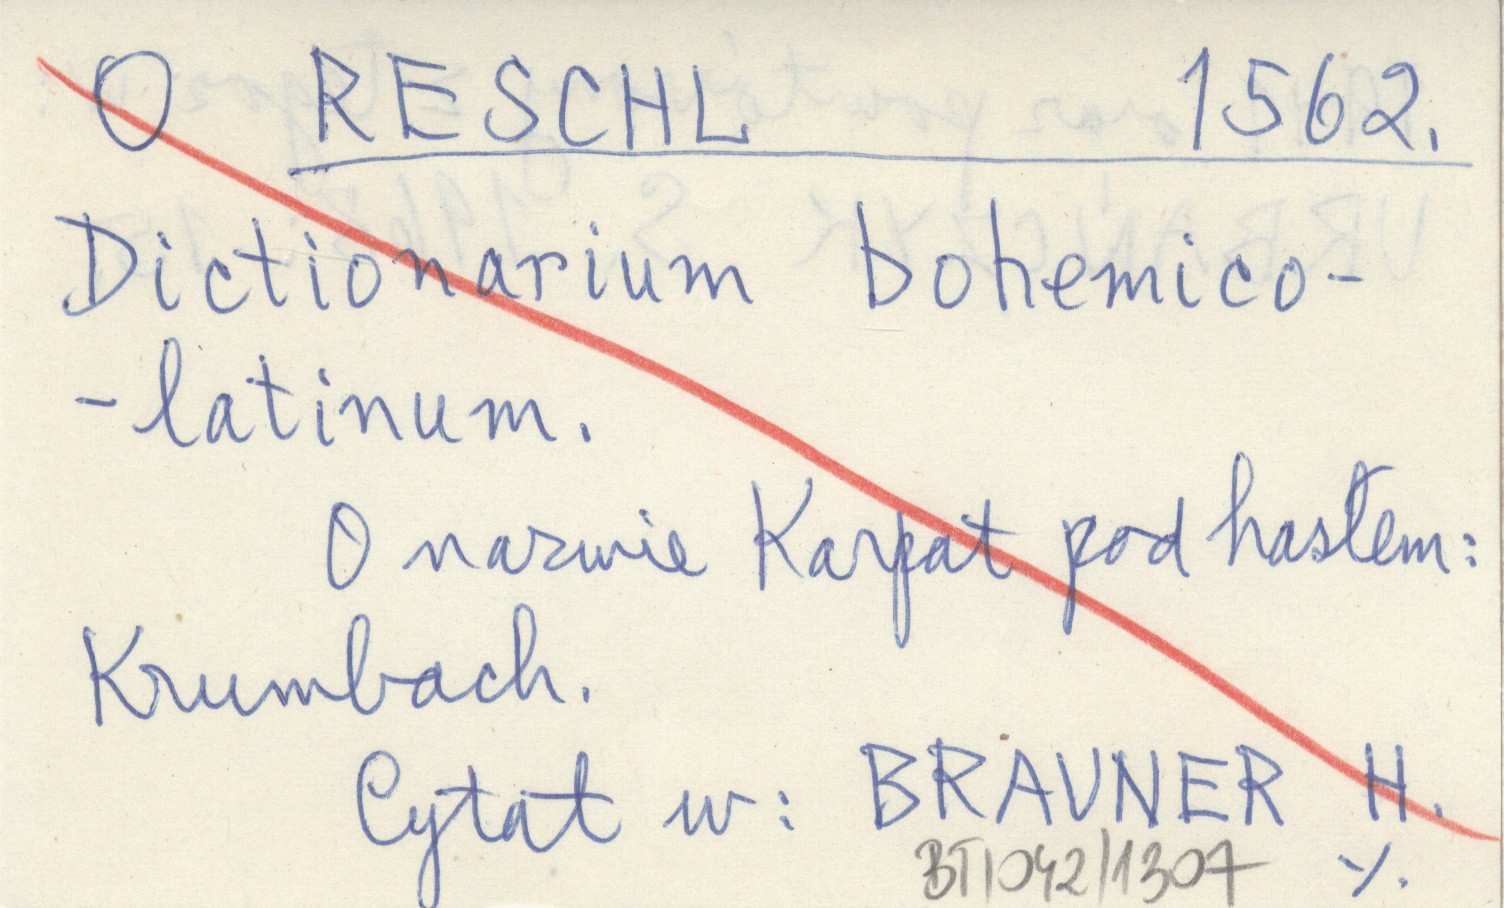 O RESCHL 1562.
Dictionarium bohemico-
-latinum.
O nazwie Karpat pod hasłem:
Krumbach.
Cytat w: BRAUNER H.
BTI042/1307 ⁒.